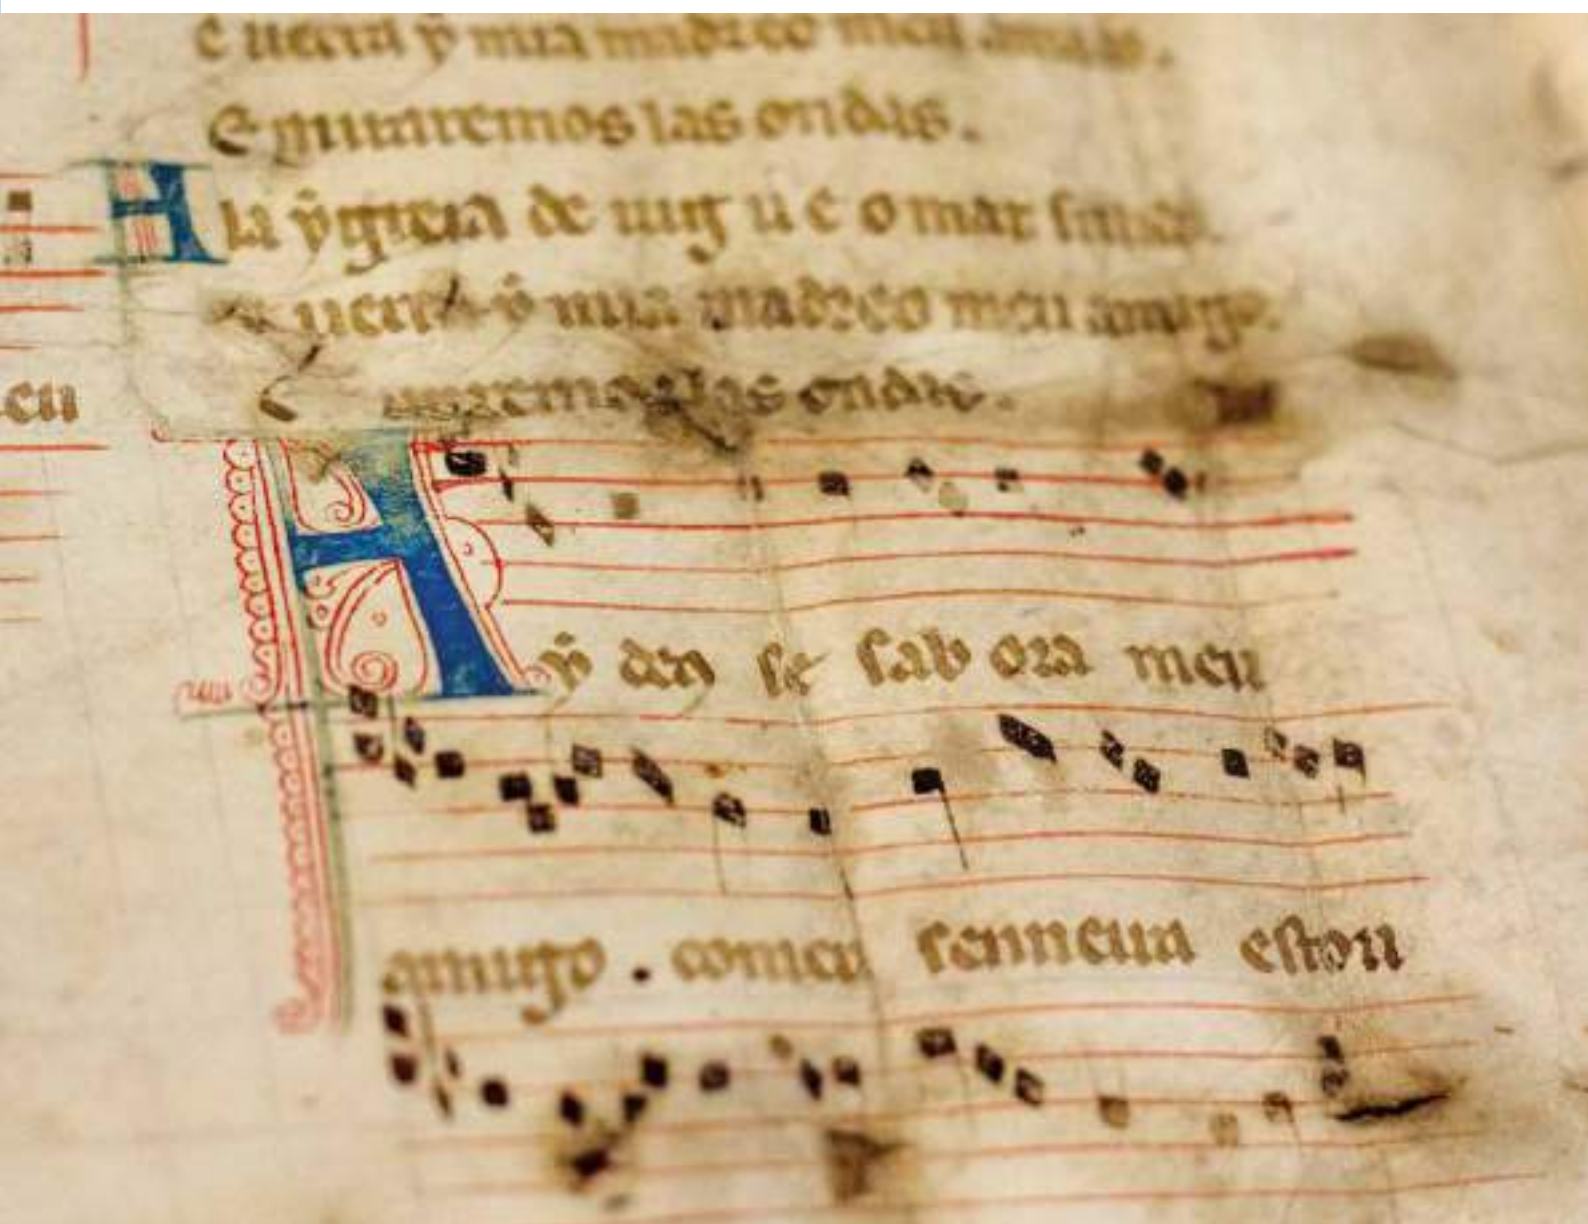 e uerra ẏ mia madre e o meu amado.
E miraremos las ondas.
A la ẏgreia de uigo u e o mar salido
E uerra ẏ mia madre e o meu amigo.
E miraremos las ondas.
eu
Aẏ deus se sab ora meu
amigo . comeu senneira estou